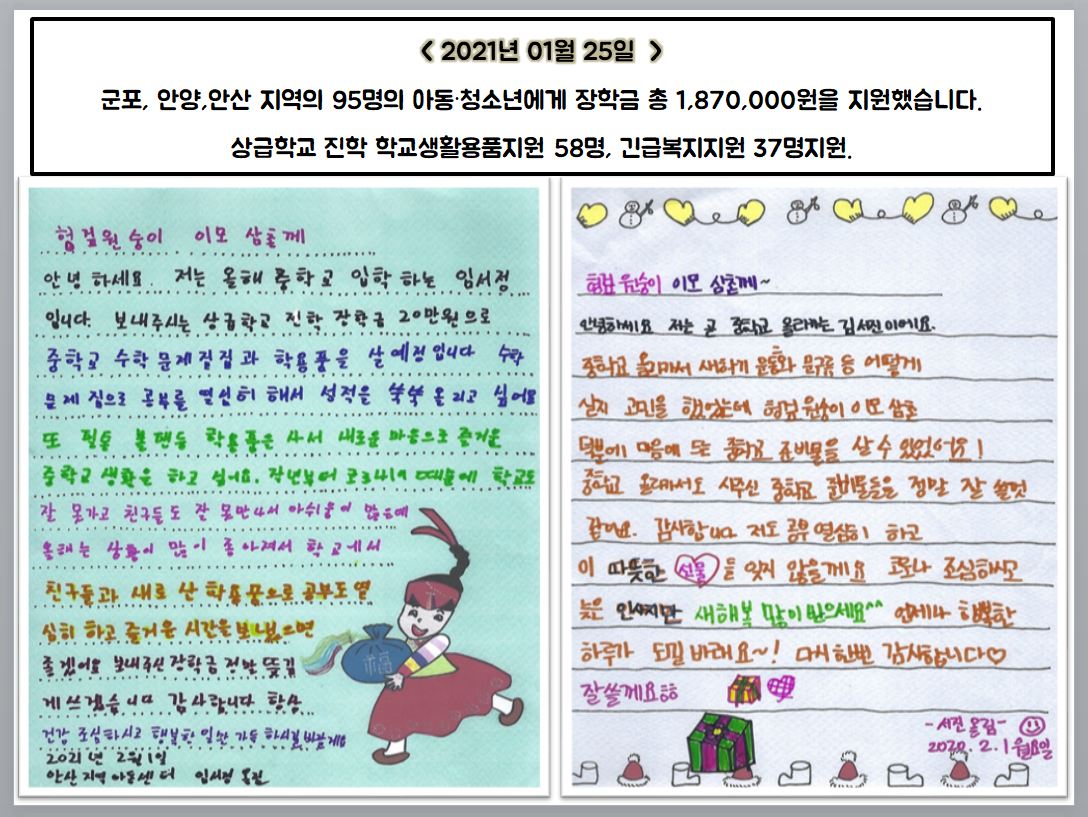 < 2021년 01월 25일 >
군포, 안양,안산 지역의 95명의 아동·청소년에게 장학금 총 1,870,000원을 지원했습니다.
상급학교 진학 학교생활용품지원 58명, 긴급복지지원 37명지원.
원숭이 이모 삼촌께
안녕 하세요. 저는 올해 중학교 입학 하는 임서정
입니다. 보내주시는 상급학교 진학 장학금 20만원으로
중학교 수학 문제질집과 학용품을 살 예정입니다 수학
문제 집으로 공부를 열심히 해서 성적을 쑥쑥 올리고 싶어요
또 필통 볼펜등 학용품은 사서 새로운 마음으로 즐거운
중학교 생활을 하고 싶어요. 작년부터 코로나19 때문에 학교도
잘 못가고 친구들도 잘 못만나서 아쉬움이 많은데
올해는 상황이 많이 좋아져서 학교에서
친구들과 새로 산 학용품으로 공부도 열
심히 하고 즐거운 시간을 보냈으면
좋겠어요 보내주신 장학금 정말 뜻깊
게 쓰겠습니다 감사합니다 항상
건강 조심하시고 행복한 일만 가득 하시길
2021년 2월 1일
안산지역아동센터 임서정
福
원숭이 이모 삼촌께~
안녕하세요 저는 곧 중학교 올라가는 김서진이에요.
중학교 올라가서 새학기 운동화와 문구류 등 어떻게
살지 고민을 했었는데 원숭이 이모 삼촌
덕분에 마음에 드는 중학교 준비물을 살 수 있었어요!
중학교 올라가서도 사주신 중학교 준비물들을 정말 잘 쓸것
같아요. 감사합니다 저도 공부 열심히 하고
이 따뜻한 선물을 잊지 않을게요 코로나 조심하시고
늦은 인사지만 새해복 많이 받으세요^^ 언제나 행복한
하루가 되길 바래요~! 다시한번 감사합니다♡
잘쓸께요ㅎㅎ
-서진 올림-
2020. 2. 1 월요일